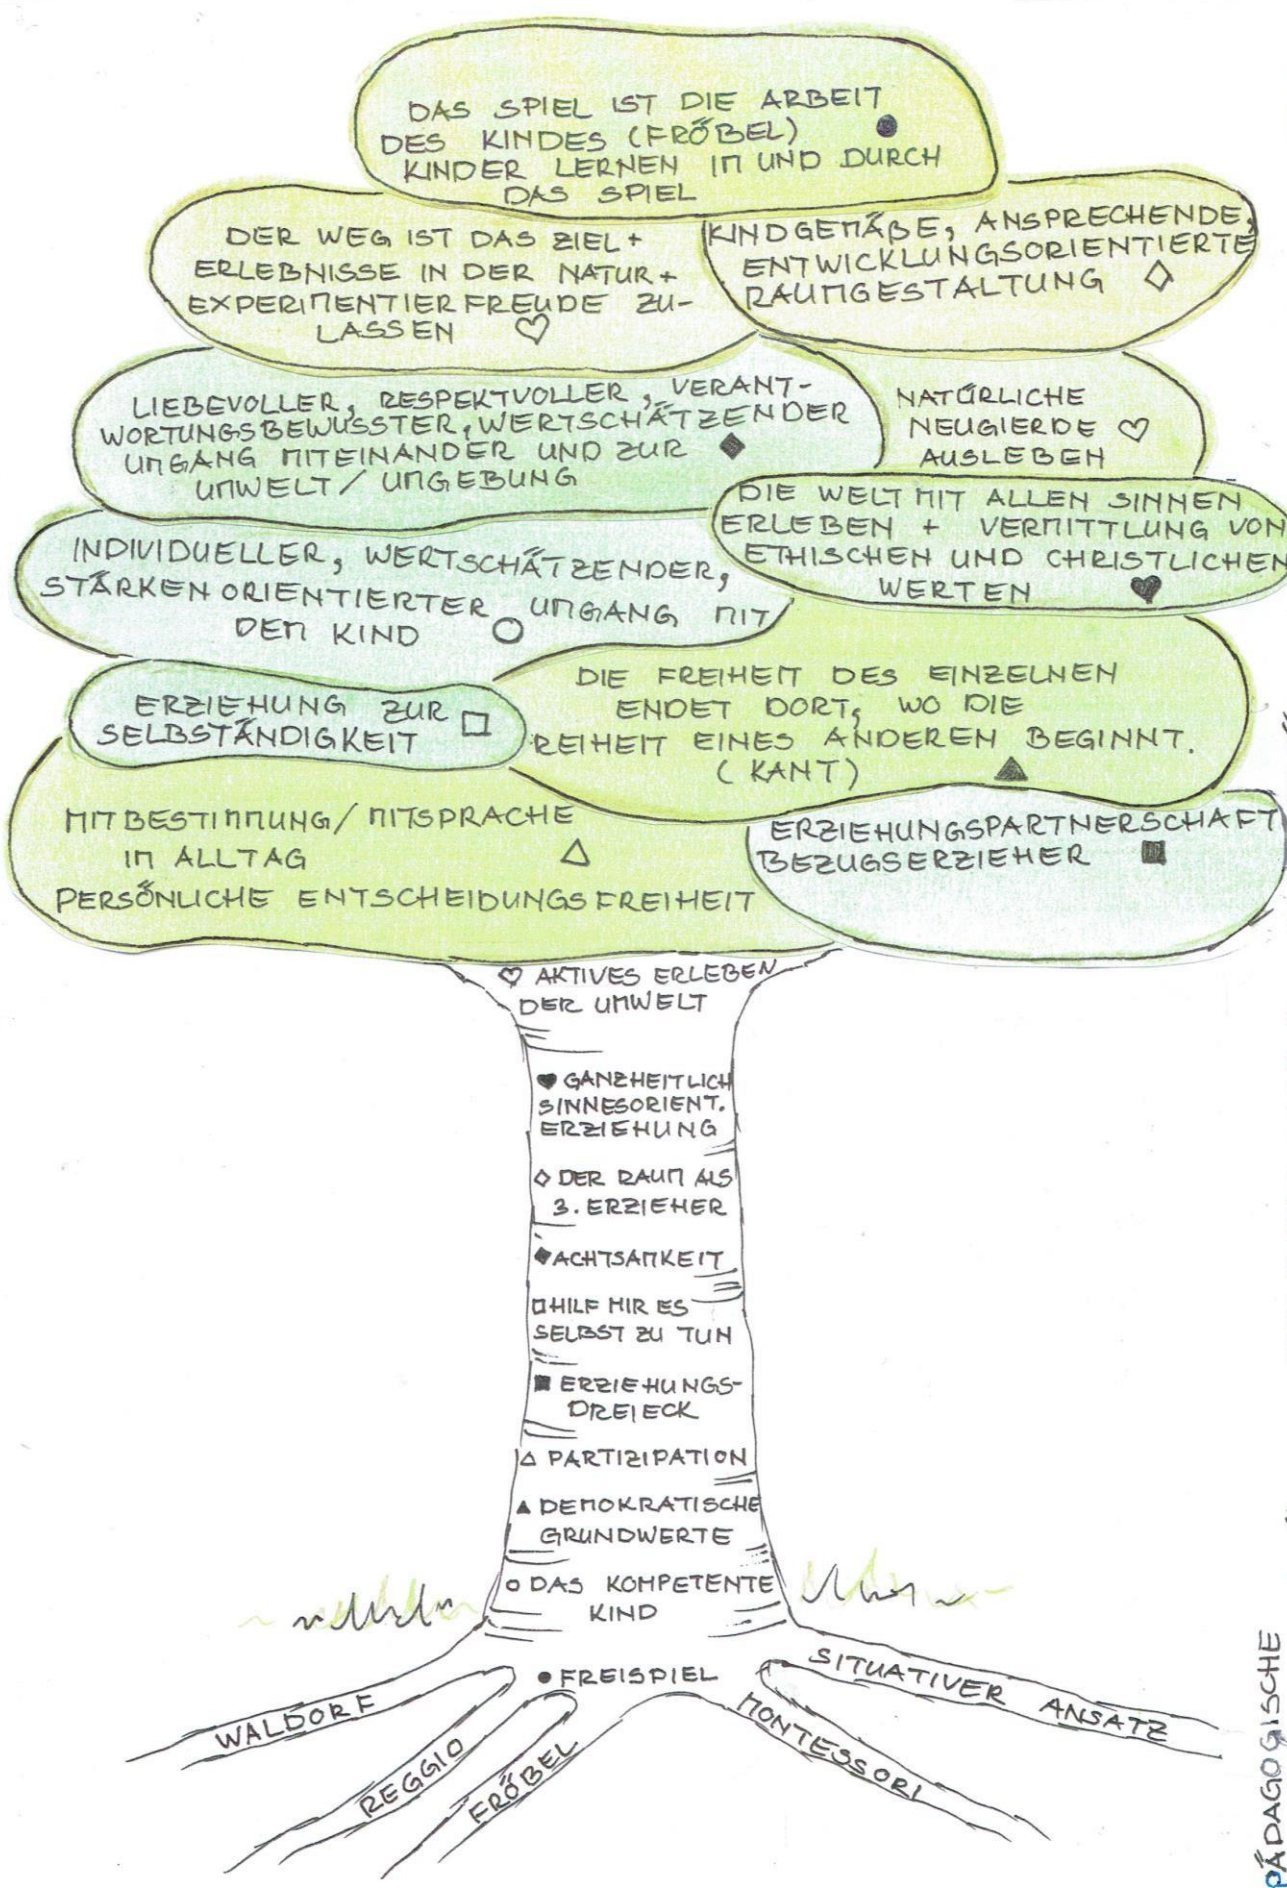 DAS SPIEL IST DIE ARBEIT
DES KINDES (FRÖBEL)
KINDER LERNEN IM UND DURCH
DAS SPIEL
DER WEG IST DAS ZIEL +
ERLEBNISSE IN DER NATUR +
EXPERIMENTIERFREUDE ZU-
LASSEN
KINDGEMÄẞE, ANSPRECHENDE,
ENTWICKLUNGSORIENTIERTE
RAUMGESTALTUNG
LIEBEVOLLER, RESPEKTVOLLER, VERANT-
WORTUNGSBEWUSSTER, WERTSCHÄTZENDER
UMGANG MITEINANDER UND ZUR
UMWELT / UMGEBUNG
NATÜRLICHE
NEUGIERDE
AUSLEBEN
DIE WELT MIT ALLEN SINNEN
ERLEBEN + VERMITTLUNG VON
ETHISCHEN UND CHRISTLICHEN
WERTEN
INDIVIDUELLER, WERTSCHÄTZENDER,
STÄRKENORIENTIERTER UMGANG MIT
DEM KIND
ERZIEHUNG ZUR
SELBSTÄNDIGKEIT
DIE FREIHEIT DES EINZELNEN
ENDET DORT, WO DIE
REIHEIT EINES ANDEREN BEGINNT.
(KANT)
MITBESTIMMUNG / MITSPRACHE
IM ALLTAG
PERSÖNLICHE ENTSCHEIDUNGSFREIHEIT
ERZIEHUNGSPARTNERSCHAFT
BEZUGSERZIEHER
AKTIVES ERLEBEN
DER UMWELT
GANZHEITLICH
SINNESORIENT.
ERZIEHUNG
DER RAUM ALS
3. ERZIEHER
ACHTSAMKEIT
HILF MIR ES
SELBST ZU TUN
ERZIEHUNGS-
DREIECK
PARTIZIPATION
DEMOKRATISCHE
GRUNDWERTE
DAS KOMPETENTE
KIND
FREISPIEL
WALDORF
REGGIO
FRÖBEL
MONTESSORI
SITUATIVER ANSATZ
PÄDAGOGISCHE